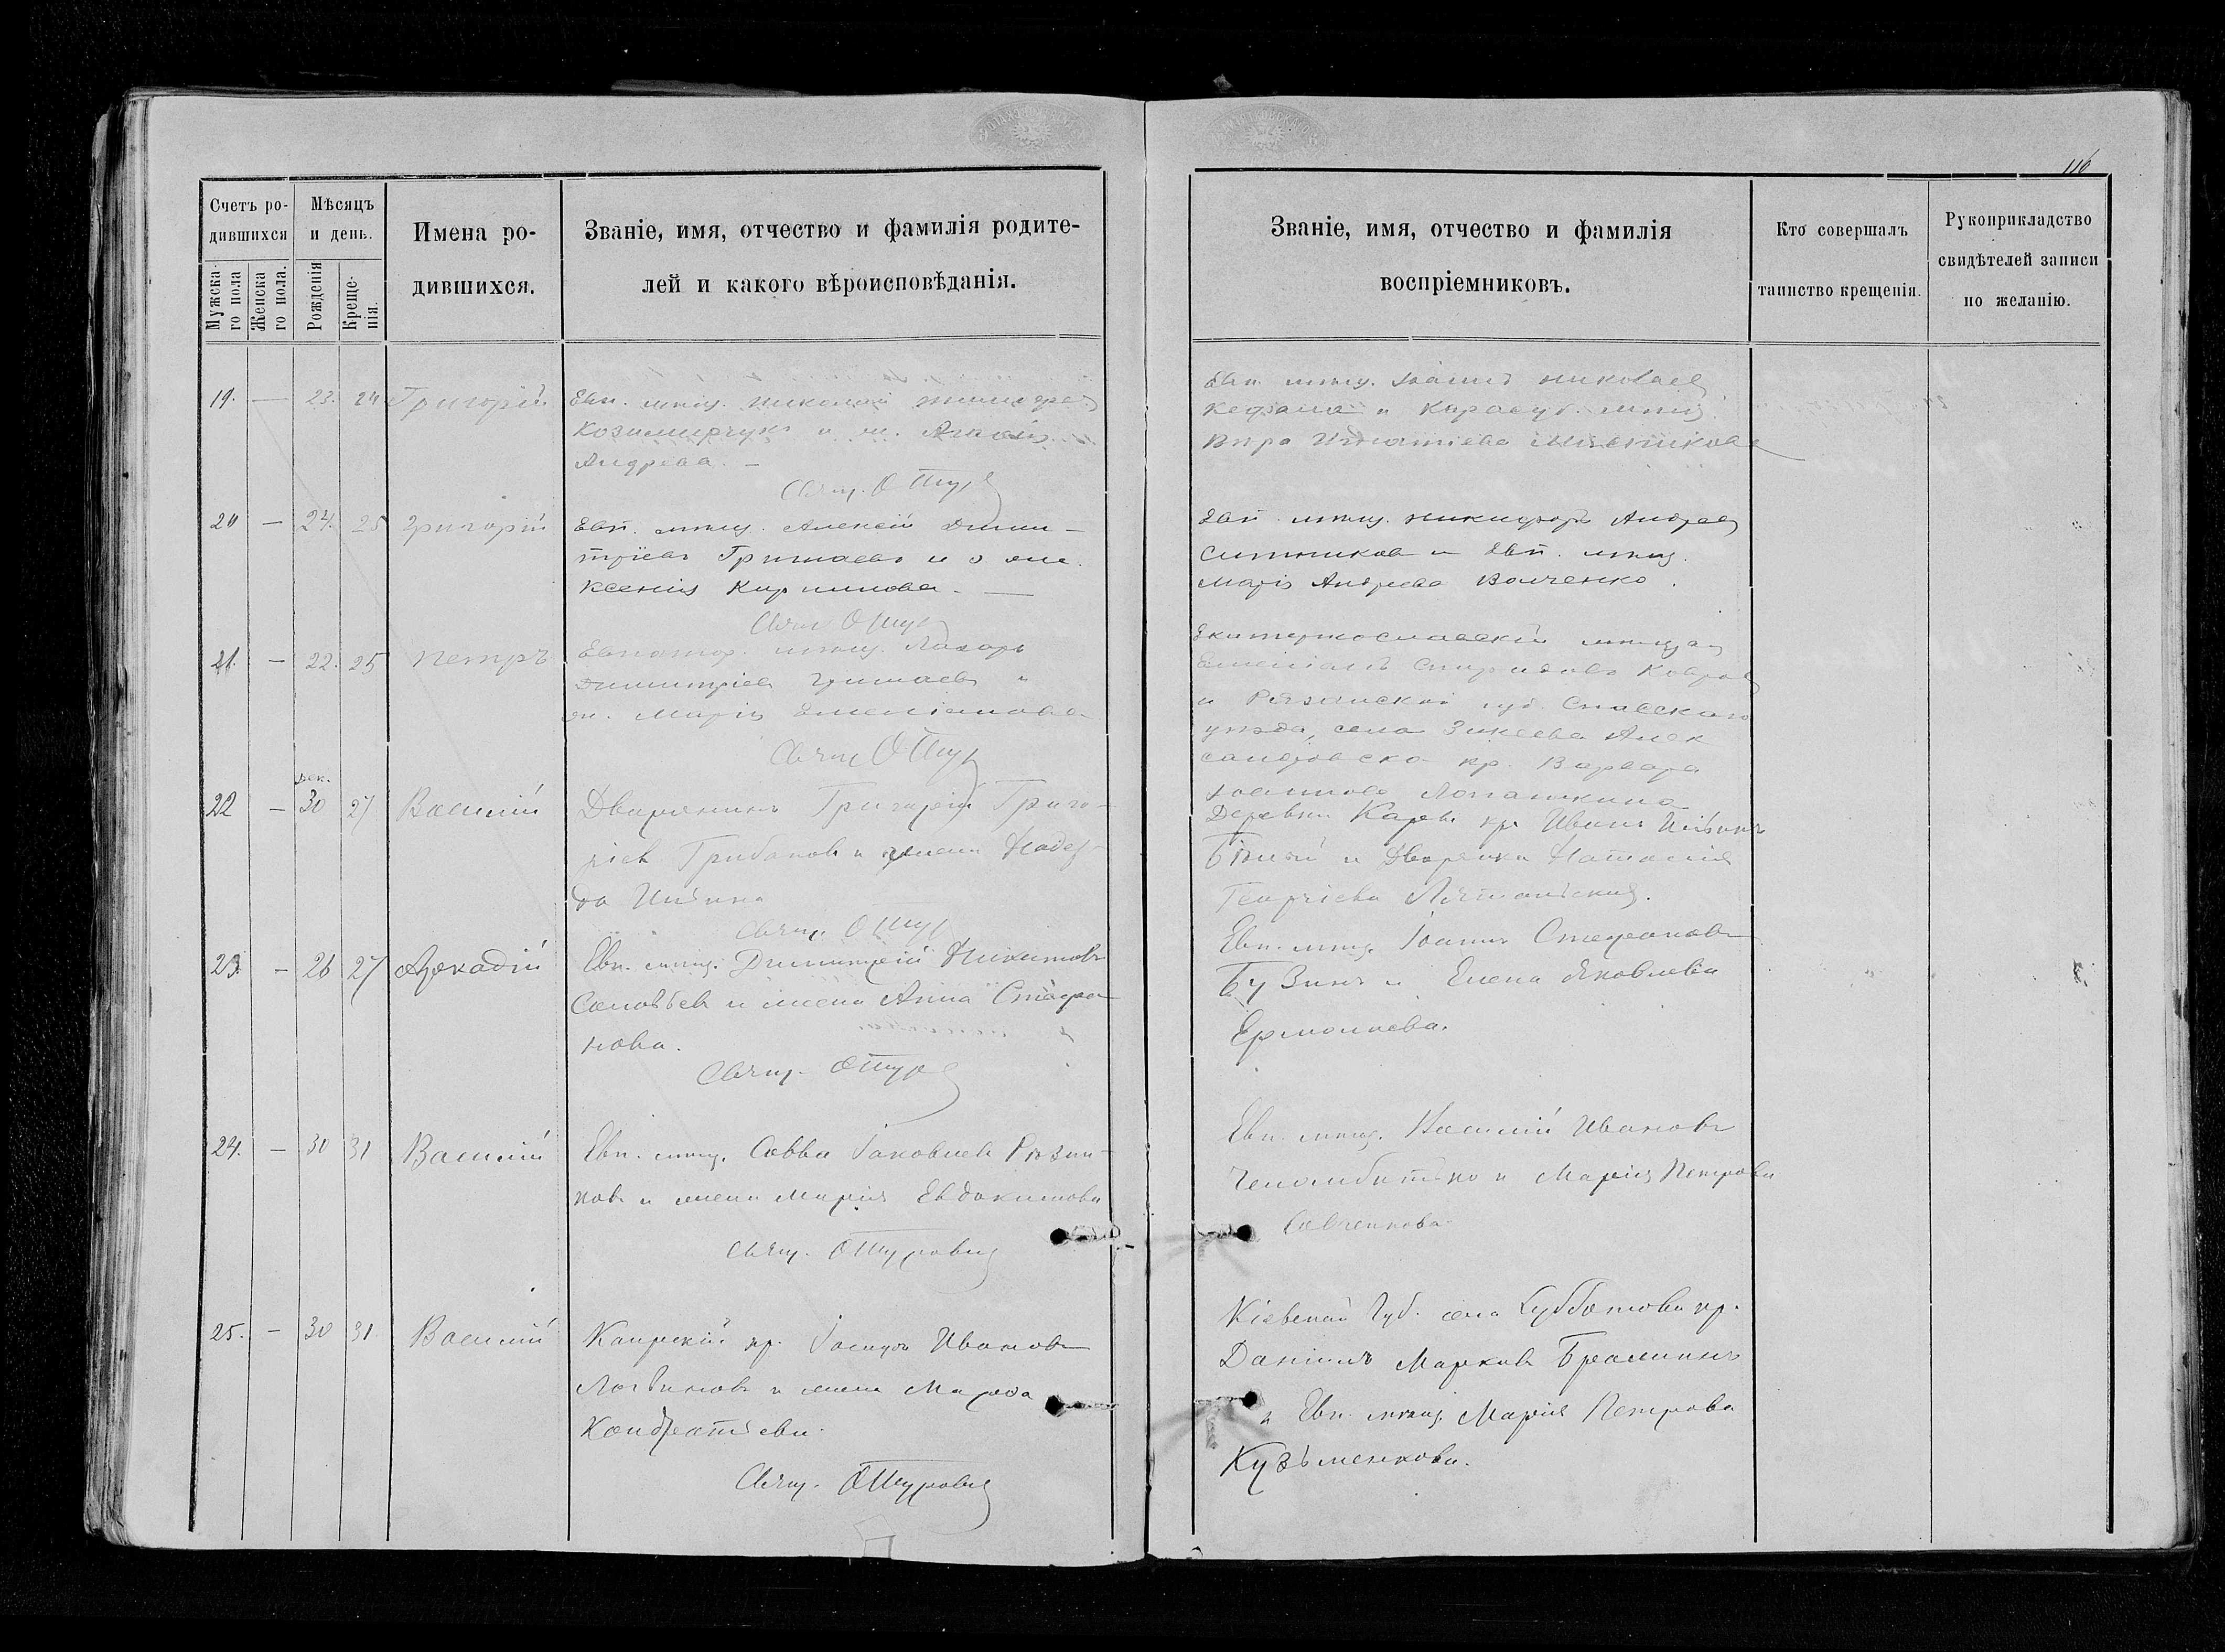 116
Счетъ ро-
дившихся
Мѣсяцъ
и день.
Мужска-
го пола
Женска
го пола.
Рожденія
Креще-
нія.
Имена ро-
дившихся.
Званіе, имя, отчество и фамилія родите-
лей и какого вѣроисповѣданія.
Званіе, имя, отчество и фамилія
воспріемниковъ.
Кто совершалъ
таинство крещенія.
Рукоприкладство
свидѣтелей записи
по желанію.
19. — 23. 24 Григорій
Евп. мтщ. Николай
и ж.
Андреева. —
Свящ.
Евп. мтщ. Іоаннъ Николаев
и Карасуб. мтщ.
Игнатіева Мясникова
20 — 24. 25 Григорій
Евп. мтщ. Алексій Дими-
тріевъ Гришаевъ и
Ксенія Кирилова. —
Свящ.
Евп. мтщ. Никифоръ Андреев
Ситников и Евп. мтщ.
Марія Андреева Волченко.
21. — 22. 25 Петръ
Евпатор. мтщ. Лазарь
Димитріев Гришаев и
ж. Марія Емеліанова
Свящ.
Екатеринославскій
Емеліанъ Спиридонов
и Рязанской губ. Спасскаго
уѣзда, села Алек
сандровско кр. Варвара
Іоаннова Лопашкина
22 — дек. 30 27 Василій
Дворянинъ Григорій Григо-
ріев Грибанов и жена Надеж-
да Ильина
Свящ.
Деревни кр. Иванъ Ильинъ
Бѣлый и Дворянка Наталія
Георгіева
23 — 26 27 Аркадій
Евп. мтщ. Димитрій Никитовъ
Соловьев и жена Анна Стефа-
нова.
Свящ.
Евп. мтщ. Іоаннъ Стефановъ
Бузинъ и Елена Яковлева
Ермолаева.
24. — 30 31 Василій
Евп. мтщ. Савва Іаковлев Рязан-
ков и жена Марія Евдокимова
Свящ.
Евп. мтщ. Василій Ивановъ
Челомбитько и Марія Петрова
Савченкова
25. — 30 31 Василій
кр. Ивановъ
Логвиновъ и жена
Кондратьева.
Свящ.
Кіевской Губ. села Субботова кр.
Даніилъ Марковъ
и Евп. мтщ. Марія Петрова
Кузьменкова.